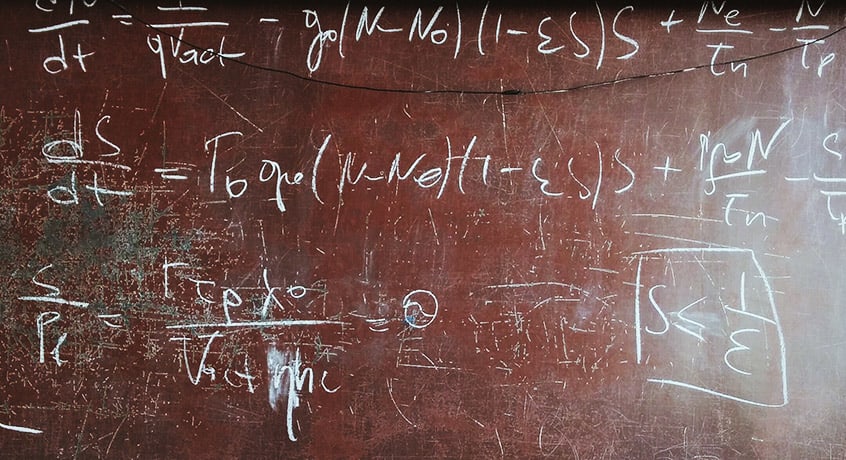 dN/dt = I/qVact - g0(N-N0)(1-εS)S + Ne/τn - N/τp
dS/dt = Γ0 g0(N-N0)(1-εS)S + N/τn - S/τp
S/Pf = Γτpλ0/Vactηhc =
S ≤ 1/ε